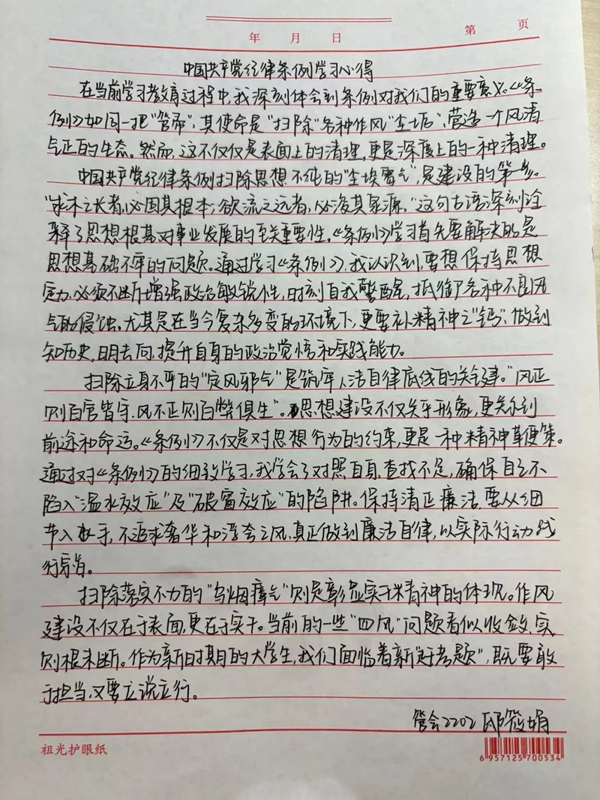 年 月 日
第 页
中国共产党纪律条例学习心得
在当前学习教育过程中,我深刻体会到条例对我们的重要意义。《条
例》如同一把"管帚",其使命是"扫除"各种作风"尘垢",营造一个风清
气正的生态。然而,这不仅仅是表面上的清理,更是深度上的一种清理。
中国共产党纪律条例扫除思想不纯的"尘埃雾气",是建设的第一步。
"求木之长者,必固其根本;欲流之远者,必浚其泉源,"这句古语深刻诠
释了思想根基对事业发展的至关重要性。《条例》学习首先要解决的是
思想基础不牢的问题。通过学习《条例》,我认识到,要想保持思想
定力,必须不断增强政治敏锐性,时刻自我警醒,抵御了各种不良风
气的侵蚀。尤其是在当今复杂多变的环境下,更要补精神之"钙",做到
知历史,明去向,提升自身的政治觉悟和实践能力。
扫除立身不牢的"歪风邪气"是筑牢人洁自律底线的关键。"风正
则百官皆守,风不正则百弊俱生"。思想建设不仅关乎形象,更关乎到
前途和命运。《条例》不仅是对思想行为的约束,更是一种精神鞭策。
通过对《条例》的细致学习,我学会了对照自身,查找不足,确保自己不
陷入"温水效应"及"破窗效应"的陷阱。保持清正廉洁,要从细
节入手,不追求奢华和浮夸之风,真正做到廉洁自律,以实际行动践
行宗旨。
扫除落实不力的"乌烟瘴气"则是彰显实干精神的体现。作风
建设不仅在于表面,更在于实干。当前的一些"四风"问题看似收敛,实
则根未断。作为新时期的大学生,我们面临着新"赶考题",既要敢
于担当,又要立说立行。
管会2202 邱筱娟
祖光护眼纸
6 957125 700534